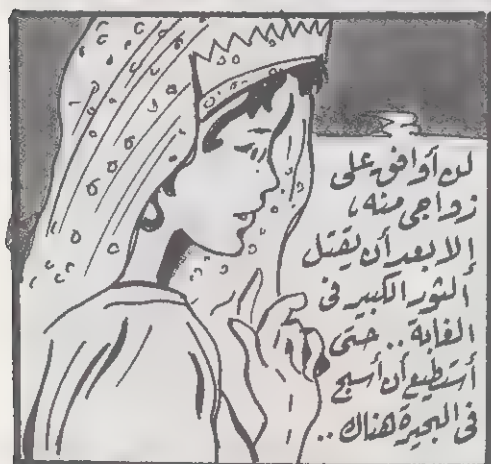 لن أوافق على
زواجى منه،
إلا بعد أن يقتل
الثور الكبير فى
الغابة.. حتى
أستطيع أن أسبح
فى البحيرة هناك..